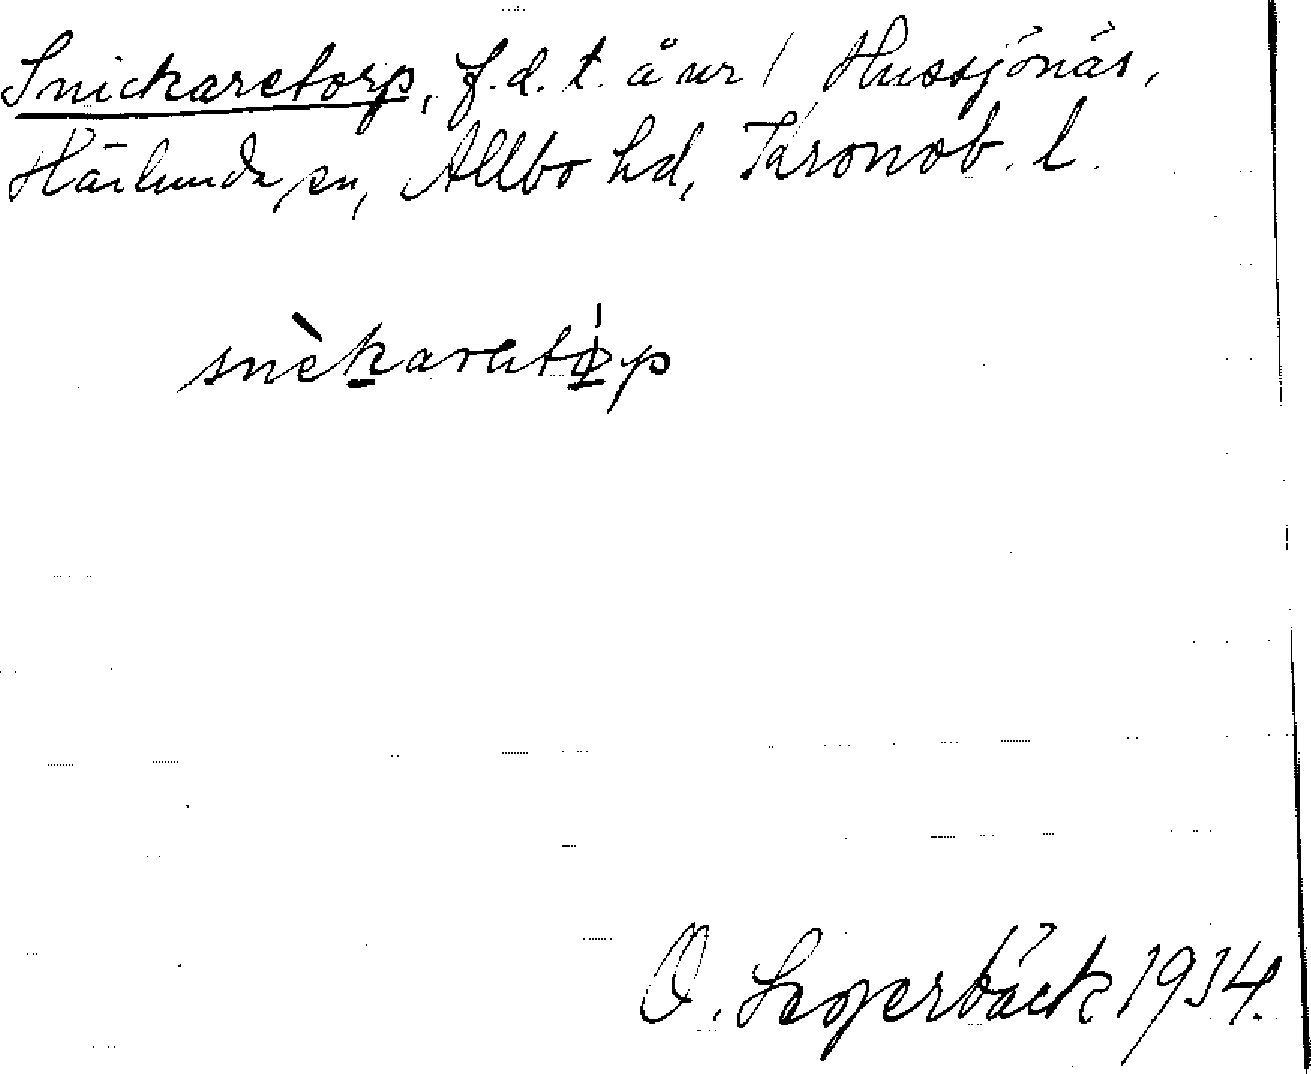 Snickaretorp, f.d. t. å nr 1 Hussjönäs,
Härlunda sn, Allbo hd, Kronob. l.
snèkaretǿrp
O. Lagerbäck 1934.